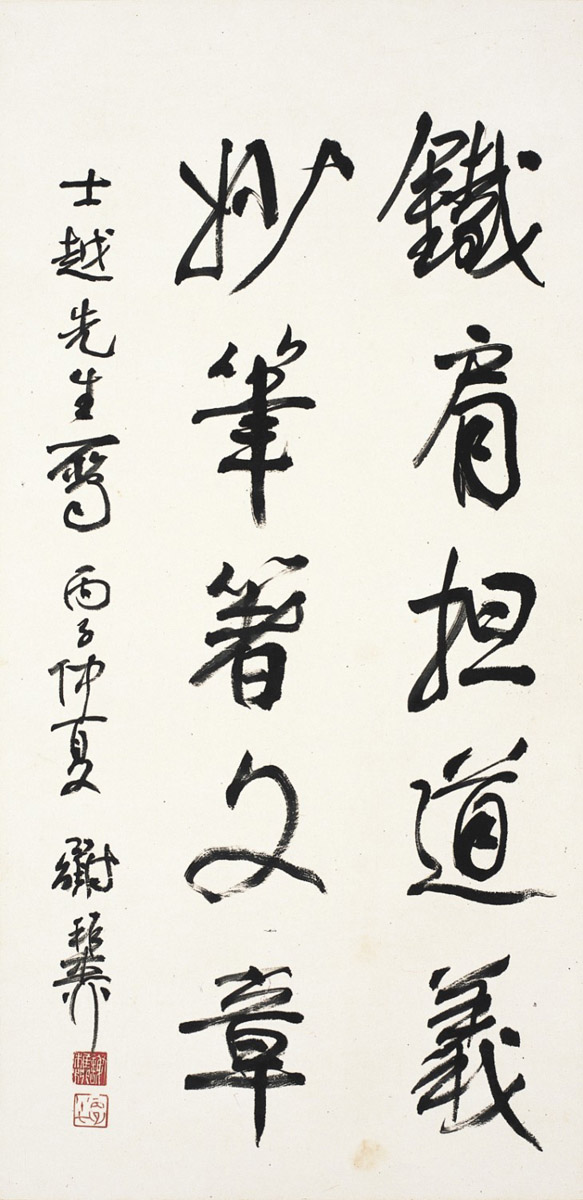 鐵肩担道義
妙筆箸文章
士越先生屬 丙子仲夏 謝